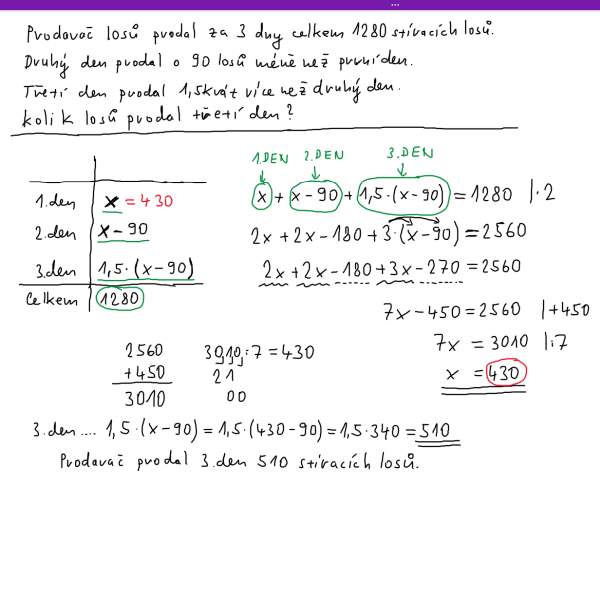 Prodavač losů prodal za 3 dny celkem 1280 stíracích losů.
Druhý den prodal o 90 losů méně než první den.
Třetí den prodal 1,5krát více než druhý den.
Kolik losů prodal třetí den?
1.DEN 2.DEN 3.DEN
x + x-90 + 1,5·(x-90) = 1280 |·2
2x+2x-180+3·(x-90)=2560
2x+2x-180+3x-270=2560
7x-450=2560 |+450
7x = 3010 |:7
x = 430
1.den x = 430
2.den x-90
3.den 1,5·(x-90)
Celkem 1280
2560
+450
3010
3010:7=430
21
00
3.den .... 1,5·(x-90)=1,5·(430-90)=1,5·340=510
Prodavač prodal 3.den 510 stíracích losů.